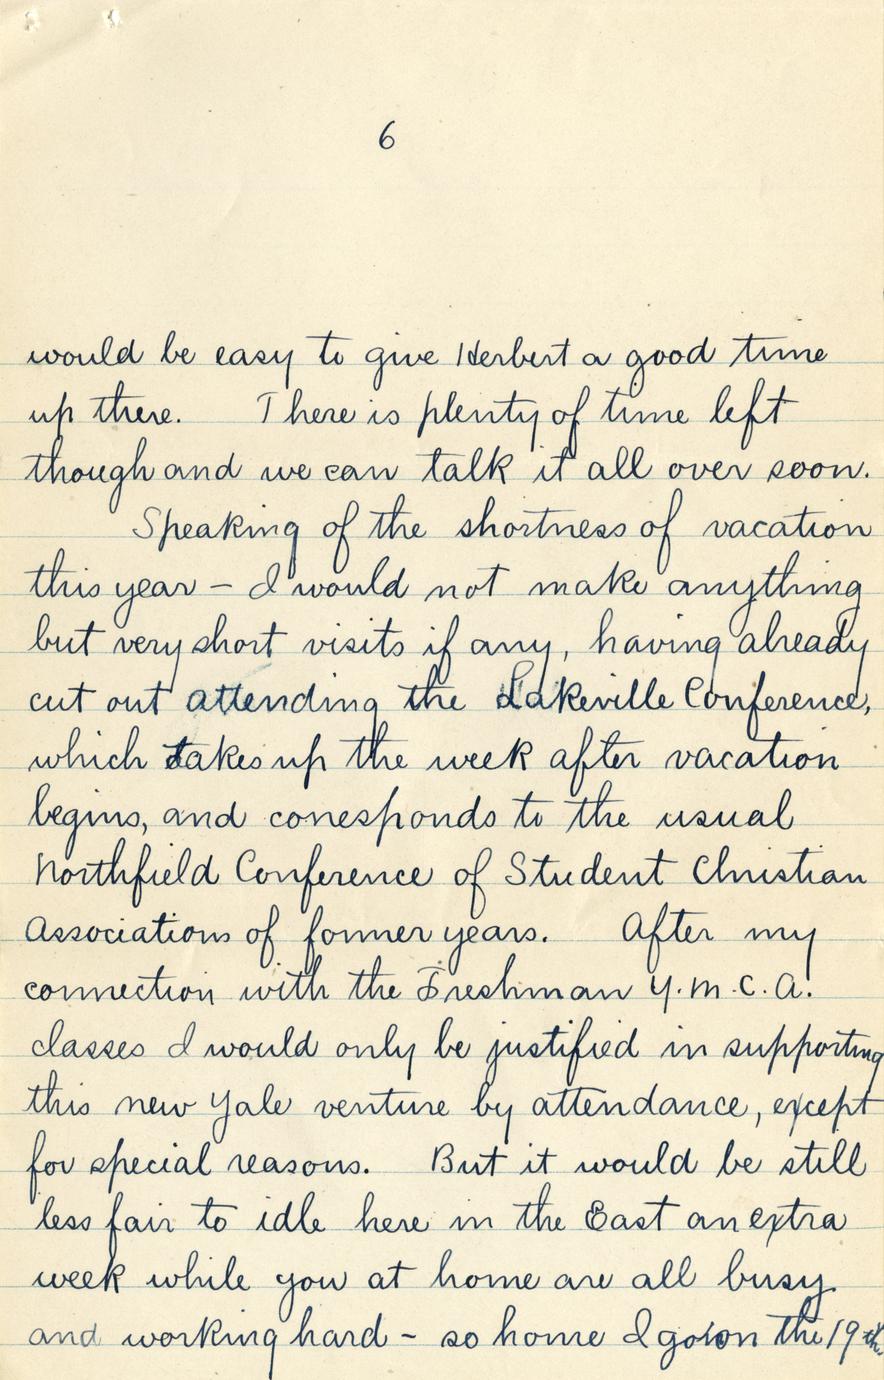 6
would be easy to give Herbert a good time
up there. There is plenty of time left
though and we can talk it all over soon.
Speaking of the shortness of vacation
this year – I would not make anything
but very short visits if any, having already
cut out attending the Lakeville Conference,
which takes up the week after vacation
begins, and corresponds to the usual
Northfield Conference of Student Christian
Associations of former years. After my
connection with the Freshman Y.M.C.A.
classes I would only be justified in supporting
this new Yale venture by attendance, except
for special reasons. But it would be still
less fair to idle here in the East an extra
week while you at home are all busy
and working hard – so home I go on the 19th